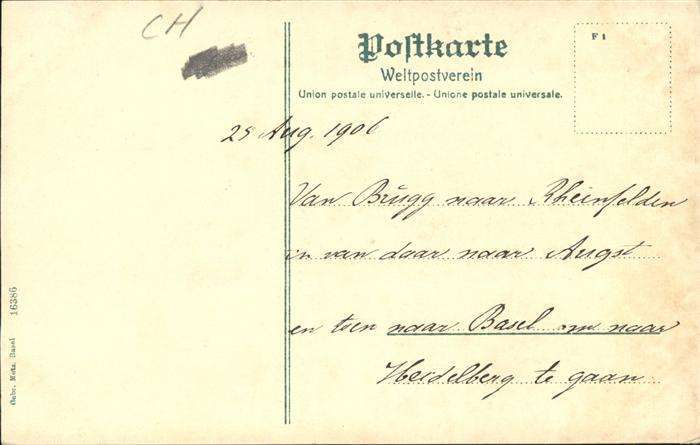 CH
Postkarte
Weltpostverein
Union postale universelle. - Unione postale universale.
F 1
25 Aug. 1906
Van Brugg naar Rheinfelden
en van daar naar Augst
en toen naar Basel om naar
Heidelberg te gaan
Gebr. Metz, Basel 16386